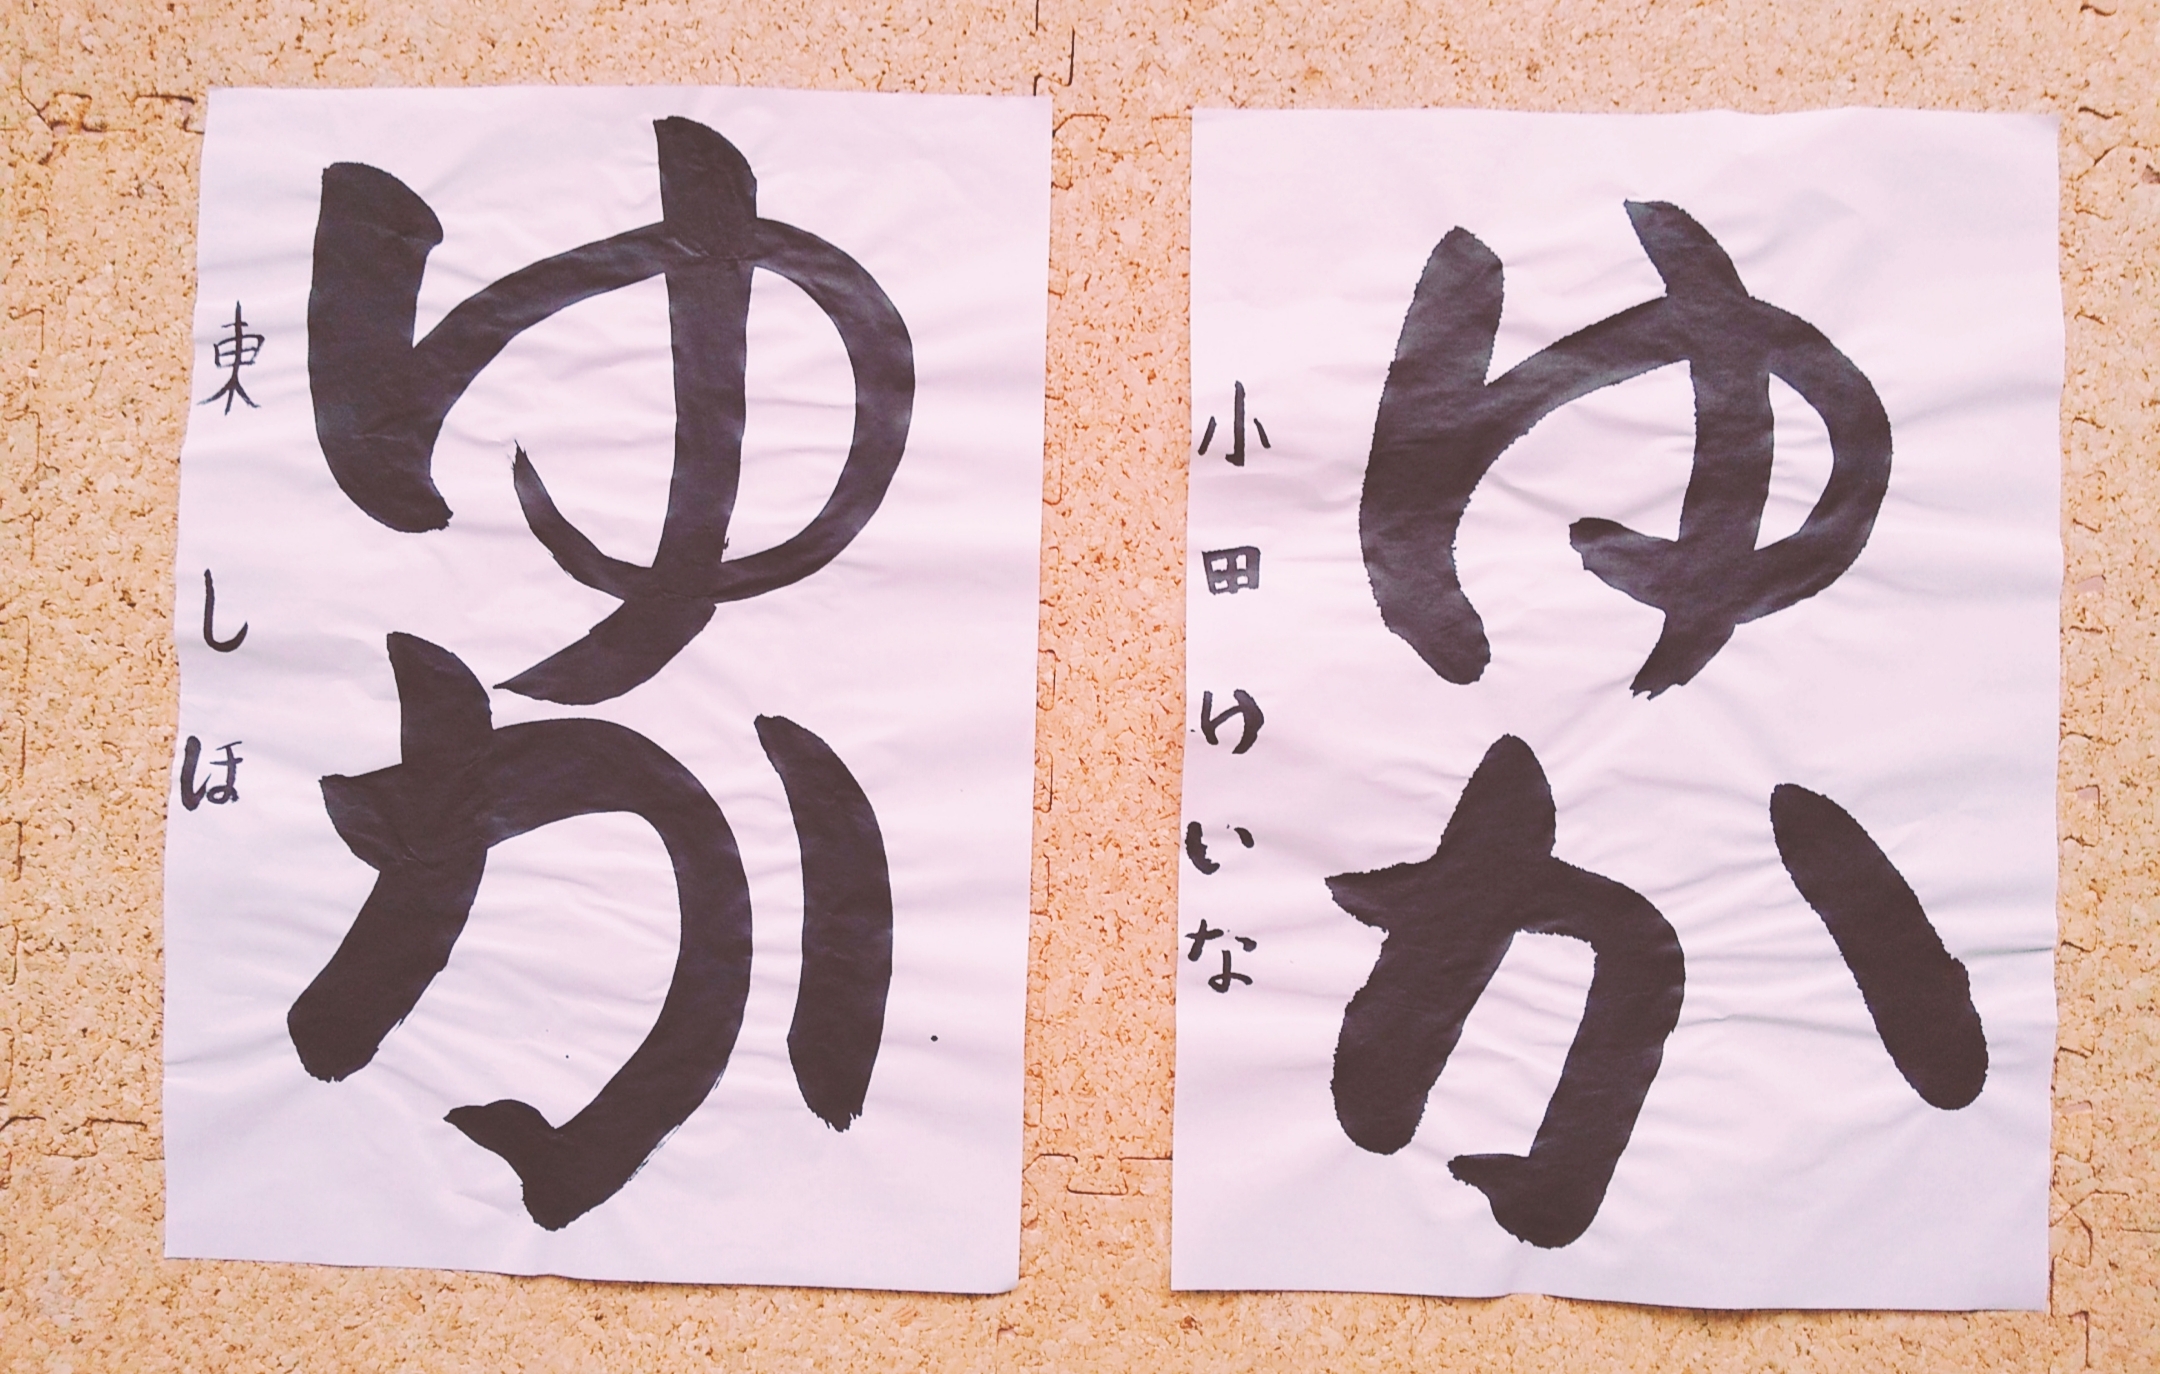 ゆか
東しほ
ゆか
小田けいな